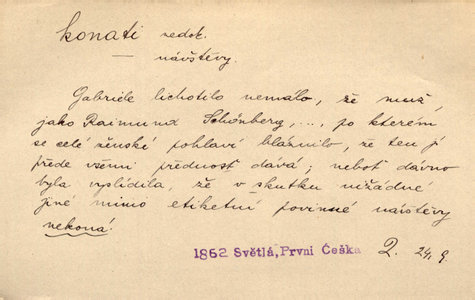 konati nedok.
— návštěvy.
Gabriele lichotilo nemálo, že muž,
jako Raimund Schönberg, ..., po kterém
se celé ženské pohlaví bláznilo, že ten jí
přede všemi přednost dává; neboť dávno
byla vyslídila, že v skutku nižádné
jiné mimo etiketní povinné návštěvy
nekoná!
1862 Světlá, První Češka 2. 24. 9.